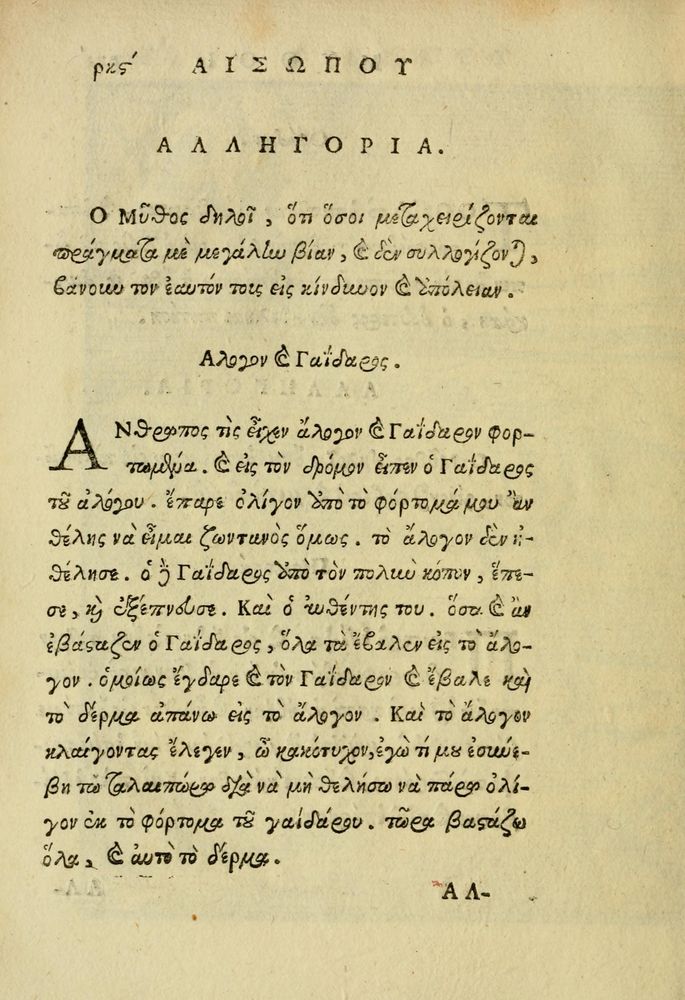 ρκϛ́ ΑΙΣΩΠΟΥ
ΑΛΛΗΓΟΡΙΑ.
Ο Μῦθος δηλοῖ, ὅτι ὅσοι μεταχειρίζονται
πράγματα μὲ μεγάλην βίαν, καὶ δὲν συλλογίζονται,
βάνουν τον ἑαυτόν τους εἰς κίνδυνον καὶ ἀπόλειαν.
Αλογον καὶ Γαΐδαρος.
ΑΝθροπος τὶς εἶχεν ἄλογον καὶ Γαΐδαρον φορ-
τωμένα. καὶ εἰς τὸν δρόμον εἶπεν ὁ Γαΐδαρος
τοῦ ἀλόγου. ἔπαρε ὀλίγον ἀπὸ τὸ φόρτομά μου ἂν
θέλης νὰ εἶμαι ζωντανὸς ὅμως. τὸ ἄλογον δὲν ἠ-
θέλησε. ὁ δὲ Γαΐδαρος ἀπὸ τὸν πολιὺ κόπον, ἔπε-
σε, καὶ ἐξέπνευσε. Καὶ ὁ αὐθέντης του. ὅσα καὶ ἂν
ἐβάσταζεν ὁ Γαΐδαρος, ὅλα τὰ ἔβαλεν εἰς τὸ ἄλο-
γον. ὁμοίως ἔγδαρε καὶ τὸν Γαΐδαρον καὶ ἔβαλε καὶ
τὸ δέρμα ἀπάνω εἰς τὸ ἄλογον. Καὶ τὸ ἄλογον
κλαίγοντας ἔλεγεν, ὦ κακότυχον, ἐγὼ τί μου ἐσυνέ-
βη τῷ ταλαιπώρῳ διὰ νὰ μὴ θελήσω νὰ πάρω ὀλί-
γον ἐκ τὸ φόρτομα τοῦ γαϊδάρου. τῶρα βαστάζω
ὅλα, καὶ ἀυτὸ τὸ δέρμα.
ΑΛ-